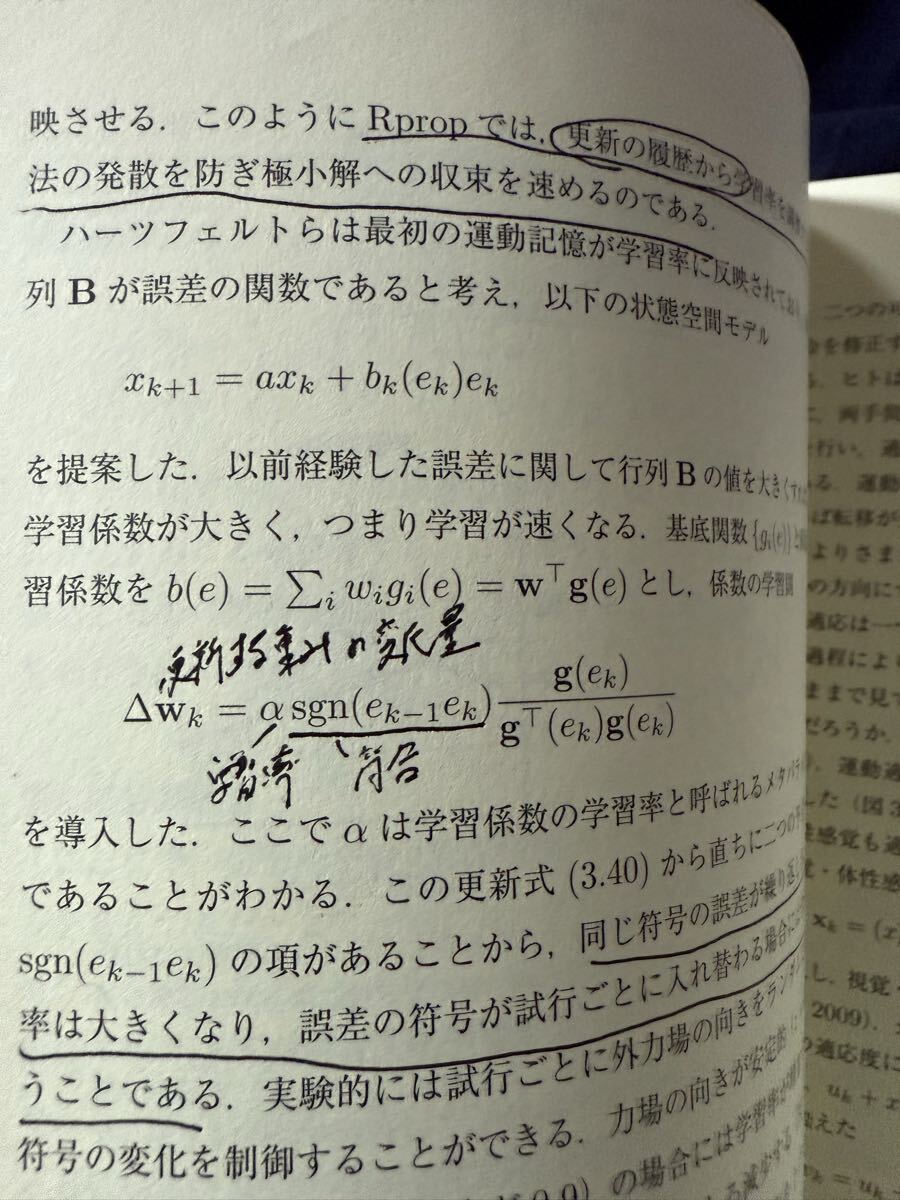 映させる．このように Rprop では，更新の履歴から学習率を
法の発散を防ぎ極小解への収束を速めるのである．
ハーツフェルトらは最初の運動記憶が学習率に反映されてお
列 B が誤差の関数であると考え，以下の状態空間モデル
x_{k+1} = ax_k + b_k(e_k)e_k
を提案した．以前経験した誤差に関して行列 B の値を大きくすれ
学習係数が大きく，つまり学習が速くなる．基底関数 {g_i(e)} と
習係数を b(e) = ∑_i w_i g_i(e) = w^⊤ g(e) とし，係数の学習
更新する 変化量
Δw_k = α sgn(e_{k−1}e_k) g(e_k) / g^⊤(e_k)g(e_k)
学習率 符合
を導入した．ここで α は学習係数の学習率と呼ばれるメタパラ
であることがわかる．この更新式 (3.40) から直ちに二つの
sgn(e_{k−1}e_k) の項があることから，同じ符号の誤差が繰り返
率は大きくなり，誤差の符号が試行ごとに入れ替わる場合に
うことである．実験的には試行ごとに外力場の向きをラン
符号の変化を制御することができる．力場の向きが安定的
0.9) の場合には学習率が
二つの
を修正す
ヒトは
両手間
を行い，適
る．運動
ば転移が
よりさま
の方向に
適応は一
過程によ
ままで見て
だろうか．
，運動適
した（図3
性感覚も適
覚・体性感
x_k = (x
し，視覚・
2009)．
の適応度に
u_k + x
加えた
= u_k